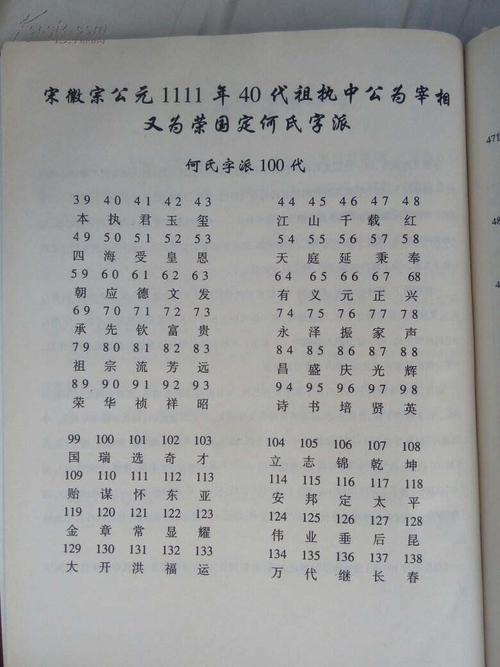 宋徽宗公元1111年40代祖执中公为宰相
又为荣国定何氏字派
何氏字派100代
39 40 41 42 43 44 45 46 47 48
本 执 君 玉 玺 江 山 千 载 红
49 50 51 52 53 54 55 56 57 58
四 海 受 皇 恩 天 庭 延 秉 奉
59 60 61 62 63 64 65 66 67 68
朝 应 德 文 发 有 义 元 正 兴
69 70 71 72 73 74 75 76 77 78
承 先 钦 富 贵 永 泽 振 家 声
79 80 81 82 83 84 85 86 87 88
祖 宗 流 芳 远 昌 盛 庆 光 辉
89 90 91 92 93 94 95 96 97 98
荣 华 祯 祥 昭 诗 书 培 贤 英
99 100 101 102 103 104 105 106 107 108
国 瑞 选 奇 才 立 志 锦 乾 坤
109 110 111 112 113 114 115 116 117 118
贻 谋 怀 东 亚 安 邦 定 太 平
119 120 121 122 123 124 125 126 127 128
金 章 常 显 耀 伟 业 垂 后 昆
129 130 131 132 133 134 135 136 137 138
大 开 洪 福 运 万 代 继 长 春